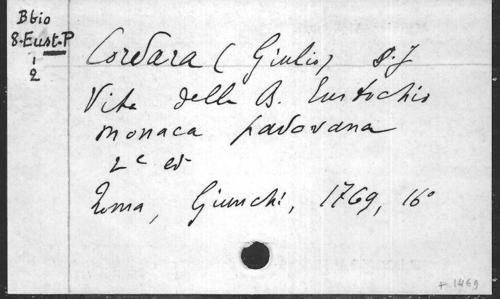 Bbio
8-Eust.P
1
2
Cordara (Giulio) S.J
Vita della B. Eustochio
monaca padovana
2e ed
Roma, Giunchi, 1769, 16°
+ 1469